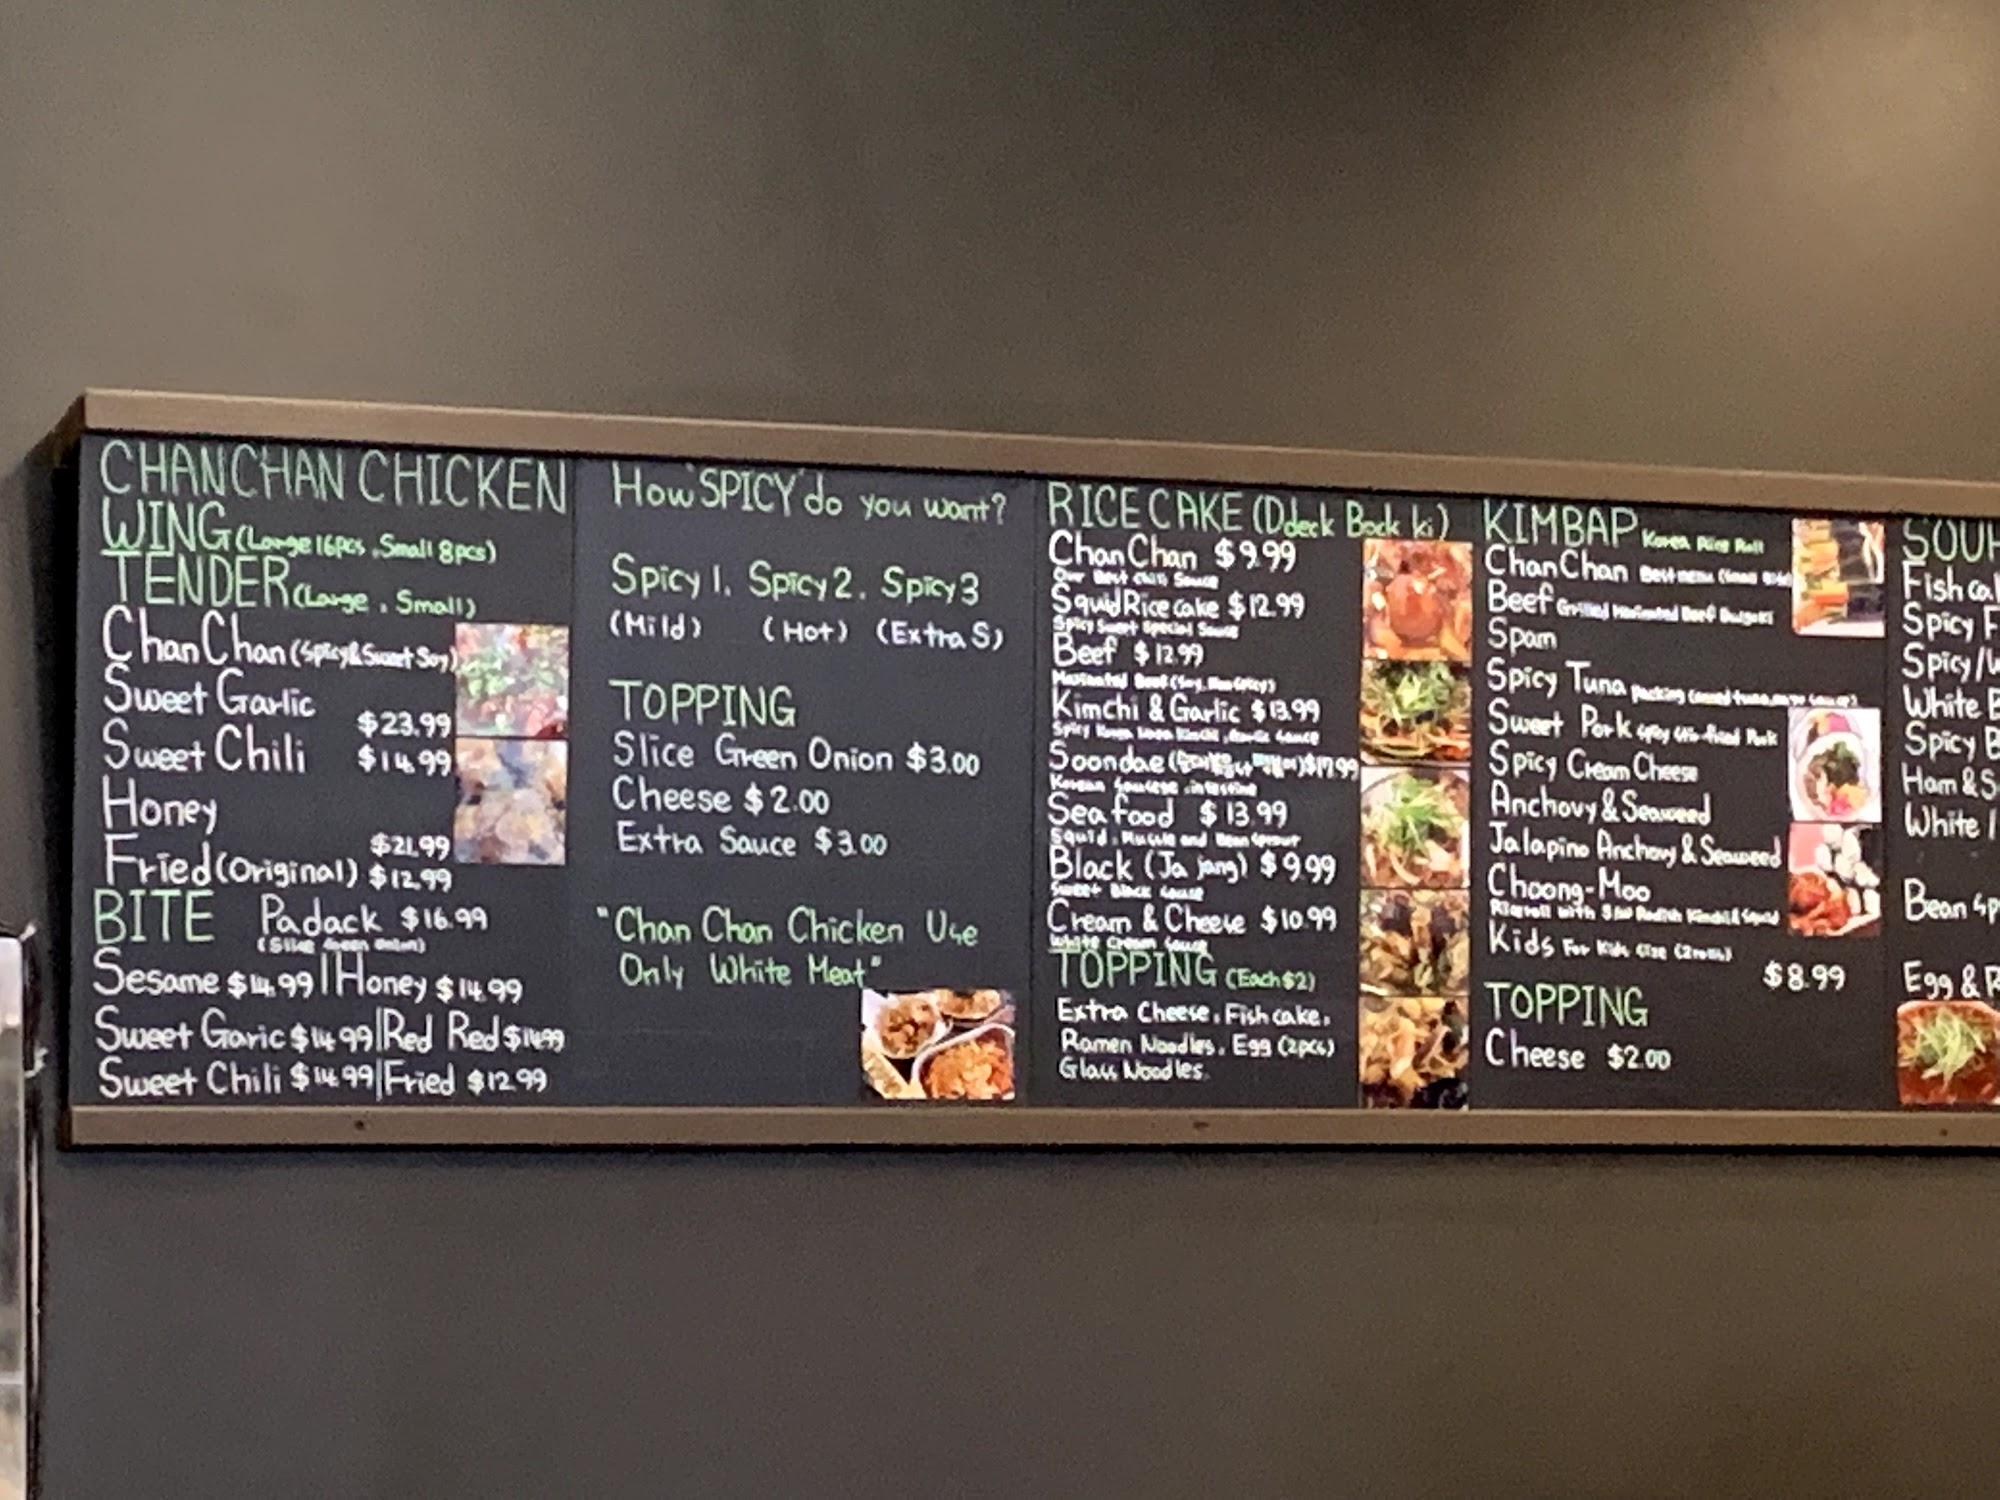 CHANCHAN CHICKEN
WING (Large 16pcs, Small 8pcs)
TENDER (Large, Small)
ChanChan (Spicy&Sweet Soy)
Sweet Garlic
$23.99
Sweet Chili $14.99
Honey
$21.99
Fried (Original) $12.99
BITE Padack $16.99
(Slice Green Onion)
Sesame $14.99 | Honey $14.99
Sweet Garic $14.99 | Red Red $14.99
Sweet Chili $14.99 | Fried $12.99
How "SPICY" do you want?
Spicy 1. Spicy 2. Spicy 3
(Mild) (Hot) (Extra S)
TOPPING
Slice Green Onion $3.00
Cheese $2.00
Extra Sauce $3.00
"Chan Chan Chicken Use
Only White Meat"
RICE CAKE (Ddeck Bock ki)
ChanChan $9.99
Our Best Chili Sauce
Squid Rice cake $12.99
Spicy Sweet Special Sauce
Beef $12.99
Marinated Beef (Soy, Non Spicy)
Kimchi & Garlic $13.99
Soondae $17.99
Seafood $13.99
Squid, Muscle and Bean Sprout
Black (Ja jang) $9.99
Sweet Black Sauce
Cream & Cheese $10.99
White Cream Sauce
TOPPING (Each $2)
Extra Cheese, Fish cake,
Ramen Noodles, Egg (2pcs)
Glass Noodles.
KIMBAP Korea Rice Roll
ChanChan Best menu
Beef Grilled Marinated Beef Bulgoki
Spam
Spicy Tuna
Sweet Pork Spicy Stir-fried Pork
Spicy Cream Cheese
Anchovy & Seaweed
Jalapino Anchovy & Seaweed
Choong-Moo
Kids For Kids Size
$8.99
TOPPING
Cheese $2.00
Spicy
White
Spicy
Ham &
White
Bean
Egg &